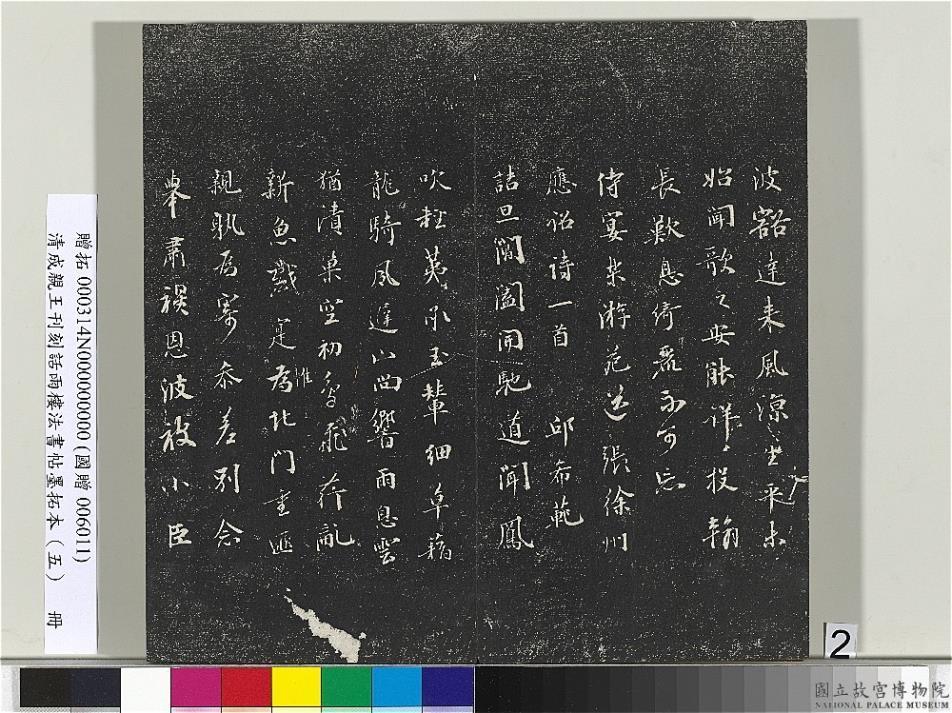 波豁達來風涼生平未
始聞歌之安能詳投翰
長歎息綺麗不可忘
侍宴樂游苑送張徐州
應詔詩一首　邱希範
詰旦閶闔開馳道聞鳳
吹輕荑承玉輦細草藉
龍騎風遲山尚響雨息雲
猶漬巢空初鳥飛荇亂
新魚戲寔為北門重匪
惟
親孰為寄參差別念
舉肅穆恩波被小臣
贈拓 000314N000000000(國贈 006011)
清成親王刊刻話雨樓法書帖墨拓本(五) 冊
2
國立故宮博物院
NATIONAL PALACE MUSEUM